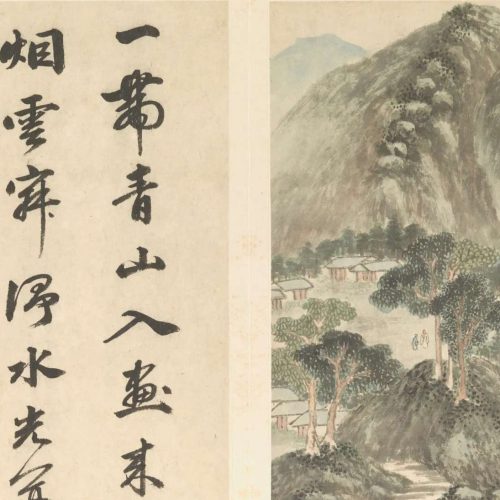 一帶青山入畫來
烟雲寂淨水光